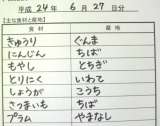 平成 24年 6月 27日分
【主な食材と産地】
食材 産地
きゅうり ぐんま
にんじん ちば
もやし とちぎ
とりにく いわて
しょうが こうち
さつまいも ちば
プラム やまなし